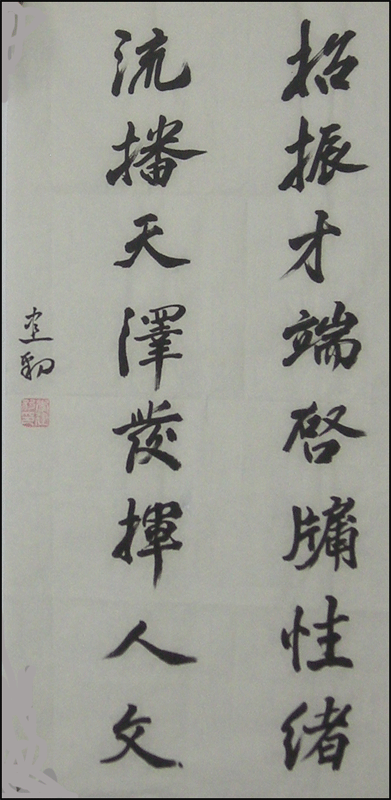 招振才端啓牖性緒
流播天澤發揮人文